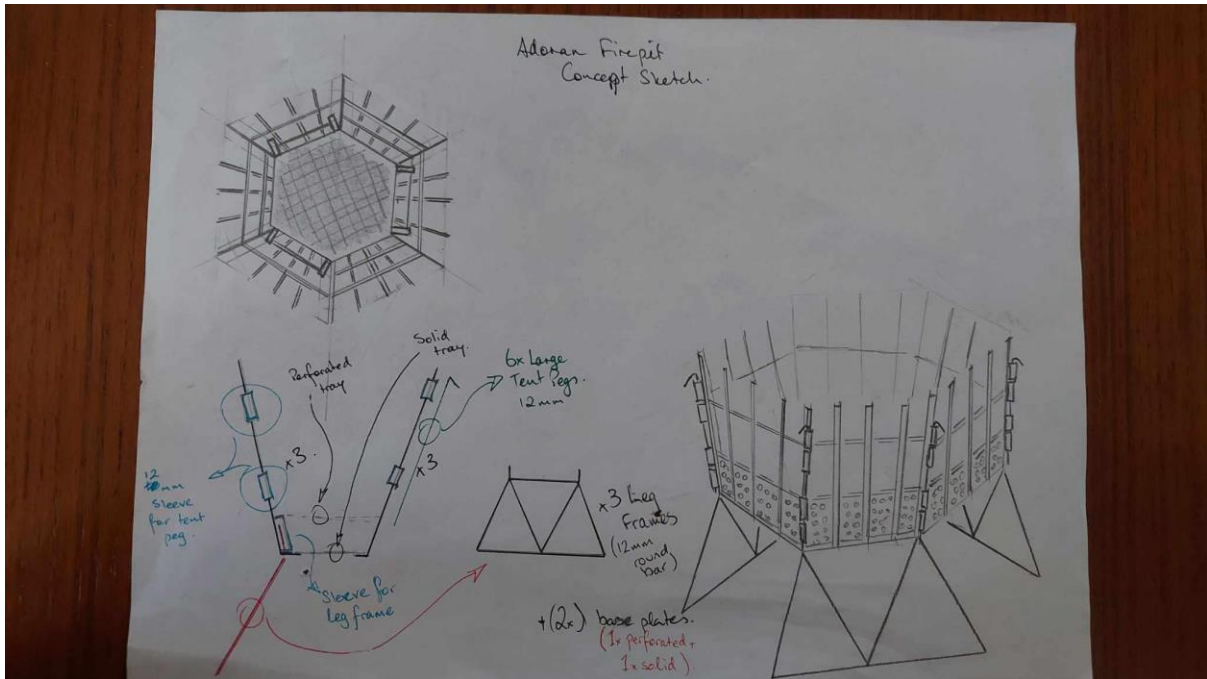 Adoman Firepit
Concept Sketch.
Solid
tray.
Perforated
tray
6x Large
Tent Pegs.
12mm
x3.
x3
12
mm
Sleeve
for tent
peg.
Sleeve for
Leg frame
x3 Leg
Frames
(12mm
round
bar)
+(2x) base plates.
(1x perforated,
1x solid).